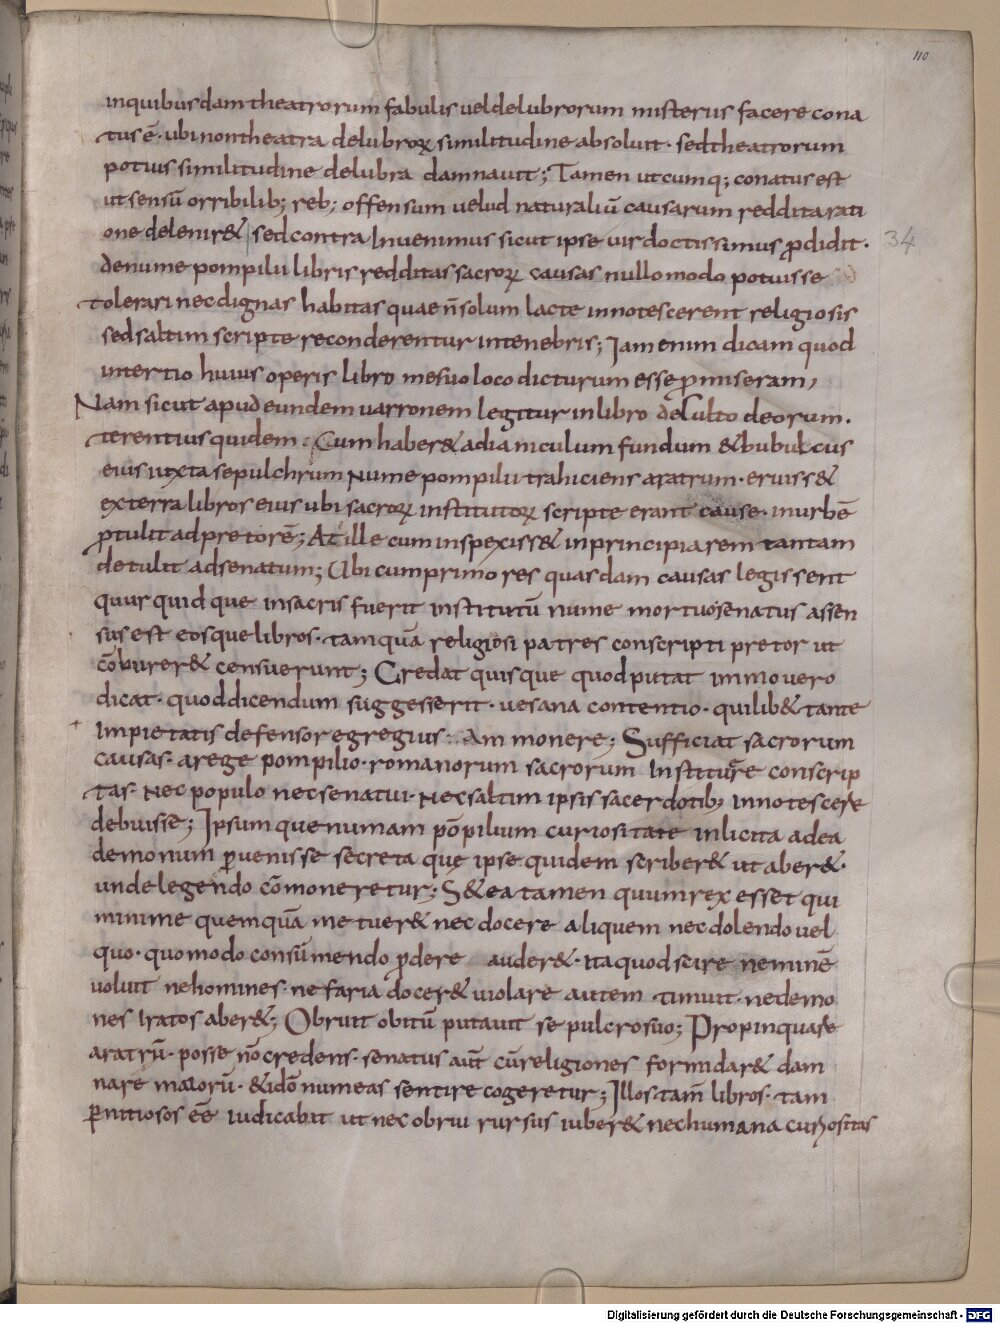 110
inquibusdam theatrorum fabulis vel delubrorum misteriis facere cona
tus ē· ubi non theatra delubroꝝ similitudine absoluit· sed theatrorum
potius similitudine delubra damnauit; Tamen utcumq; conatus est
ut sensū orribilib; reb; offensum uelud naturaliū causarum reddita rati
one delenir& sed contra Inuenimus sicut ipse uir doctissimus ꝓdidit·
34
denume pompilii libris redditas sacroꝝ causas nullo modo potuisse
tolerari nec dignas habitas quae n̄ solum lacte innotescerent religiosis
sed saltim scripte reconderentur intenebris; Iam enim dicam quod
intertio huius operis libro me suo loco dicturum esse ꝓmiseram,
Nam sicut apud eundem uarronem legitur in libro de Culto deorum·
terentius quidem· Cum haber& adianiculum fundum & bubulcus
eius iuxta sepulchrum Nume pompilii trahiciens aratrum· eruiss&
ex terra libros eius ubi sacroꝝ institutoꝝ scripte erant cause· inurbē
ꝓtulit ad pretorē; At ille cum inspexiss& in principia rem tantam
detulit ad senatum; Ubi cum primo res quasdam causas legissent
quur quid que insacris fuerit institutū nume mortuo senatus assen
sus est eosque libros· tamquā religiosi patres conscripti pretor ut
cōburer& censuerunt; Credat quisque quod putat immo uero
dicat· quod dicendum suggesserit· uesana contentio· quilib& tante
Impietatis defensor egregius· Am monere; Sufficiat sacrorum
causas· arege pompilio· romanorum sacrorum Institure conscrip
tas· Nec populo nec senatui· Nec saltim ipsis sacerdotib; innotescere
debuisse; Ipsum que numam pōpilium curiositate inlicita ad ea
demonum ꝑuenisse secreta que ipse quidem scriber& ut aber&·
unde legendo cōmoneretur; S& ea tamen quum rex esset qui
minime quemquā metuer& nec docere aliquem nec dolendo uel
quo· quomodo consūmendo ꝓdere auder&· ita quod scire neminē
uoluit ne homines· nefaria docer& uiolare autem timuit· nedemo
nes Iratos aber&; Obruit obitū putauit sepulcro suo; Propinquare
aratrū· posse nō credens· senatus aūt cū religiones formidar& dam
nare maiorū· & idō numeas sentire cogeretur; Illos· tam̄ libros· tam
ꝑnitiosos ēē iudicabit ut nec obrui rursus iuber& nec humana curiositas
Digitalisierung gefördert durch die Deutsche Forschungsgemeinschaft - DFG